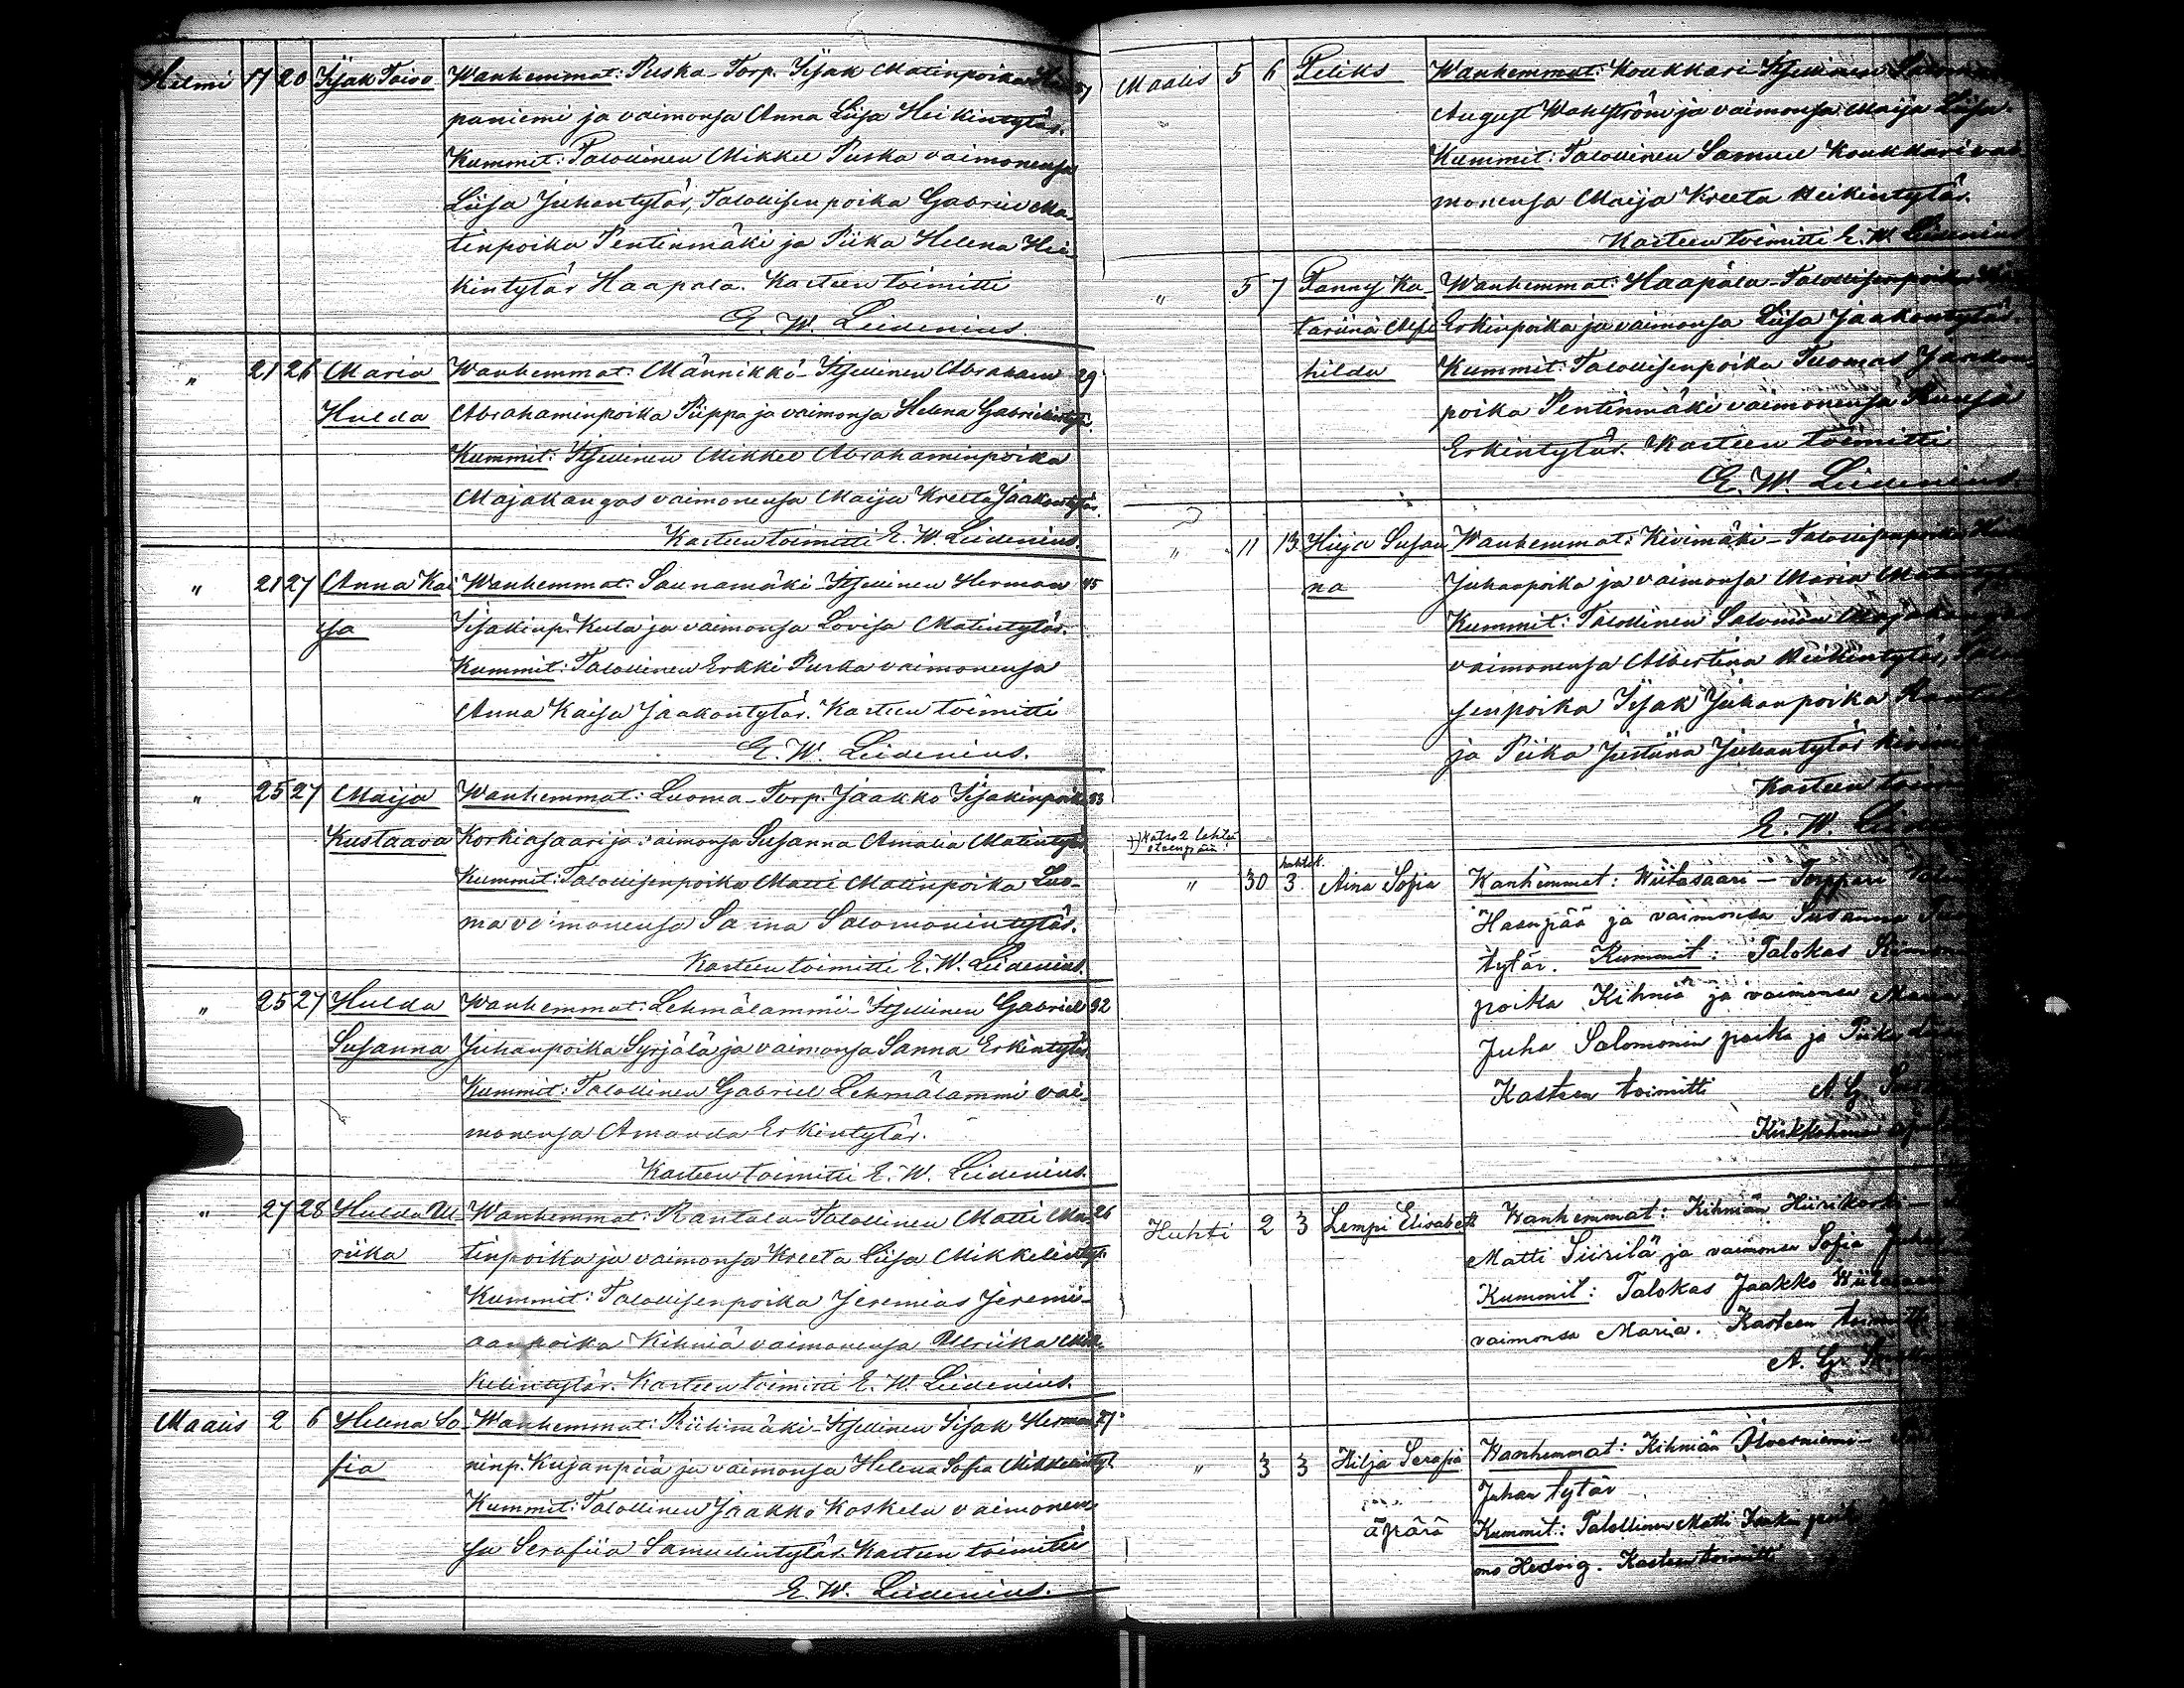 Helmi 17 20 Iisak Toivo Wanhemmat: Puska-Torp. Iisak Matinpoika 31
paniemi ja vaimonsa Anna Liisa Heikintytär.
Kummit: Talollinen Mikkel Puska vaimonensa
Liisa Juhantytär, Talollisenpoika Gabriel Ma-
tinpoika Pentinmäki ja Piika Helena Hei-
kintytär Haapala. Kasteen toimitti
E. W. Leidenius.
" 21 26 Maria Wanhemmat: Männikkö-Itsellinen Abraham 29
Hulda Abrahaminpoika Piippa ja vaimonsa Helena Gabrielintytär.
Kummit: Itsellinen Mikkel Abrahaminpoika
Majakangas vaimonensa Maija Kreeta Jaakontytär.
Kasteen toimitti E. W. Leidenius.
" 21 27 Anna Kai Wanhemmat: Saunamäki-Itsellinen Herman 45
sa Iisakinp. Kula ja vaimonsa Lovisa Matintytär.
Kummit: Talollinen Erkki Puska vaimonensa
Anna Kaisa Jaakontytär. Kasteen toimitti
E. W. Leidenius.
" 25 27 Maija Wanhemmat: Luoma-Torp. Jaakko Iisakinpoika 33
Kustaava Korkiasaari ja vaimonsa Susanna Amalia Matintytär.
Kummit: Talollisenpoika Matti Matinpoika Luo-
ma vaimonensa Sanna Salomonintytär.
Kasteen toimitti E. W. Leidenius.
" 25 27 Hulda Wanhemmat: Lehmälammi-Itsellinen Gabriel 32
Susanna Juhanpoika Syrjälä ja vaimonsa Sanna Erkintytär.
Kummit: Talollinen Gabriel Lehmälammi vai-
monensa Amanda Erkintytär.
Kasteen toimitti E. W. Leidenius.
" 27 28 Hulda Ul- Wanhemmat: Rantala-Talollinen Matti Ma- 26
riika tinpoika ja vaimonsa Kreeta Liisa Mikkelintyt.
Kummit: Talollisenpoika Jeremias Jeremi-
aanpoika Kihniä vaimonensa Ulriika Mik-
kelintytär. Kasteen toimitti E. W. Leidenius.
Maalis 2 6 Helena So- Wanhemmat: Riihimäki-Itsellinen Iisak Herman- 27
fia ninp. Kujanpää ja vaimonsa Helena Sofia Mikkelintyt.
Kummit: Talollinen Jaakko Koskela vaimonen-
sa Serafiia Samuelintytär. Kasteen toimitti
E. W. Leidenius.
Maalis 5 6 Feliks Wanhemmat: Koukkari-Itsellinen
August Wahlström ja vaimonsa Maija Liisa.
Kummit: Talollinen Samuel Koukkari vai-
monensa Maija Kreeta Heikintytär.
Kasteen toimitti E. W. Leidenius
" 5 7 Fanny Ka- Wanhemmat: Haapala-Talollisenpoika
tariina Mat- Erkinpoika ja vaimonsa Liisa Jaakontytär.
hilda Kummit: Talollisenpoika Tuomas Jaakon-
poika Pentinmäki vaimonensa
Erkintytär. Kasteen toimitti
E. W. Leidenius.
" 11 13 Hilja Susan Wanhemmat: Kivimäki-Talollisenpoika
na Juhanpoika ja vaimonsa Maria
Kummit: Talollinen Salomon
vaimonensa Albertina Heikintytär,
senpoika Iisak Juhanpoika
ja Piika Justiina Juhantytär
Kasteen
E. W.
+) Katso 2 lehteä
eteenpäin!
" 30 huhtik. 3. Aina Sofia Wanhemmat: Wiitasaari-Torppari
Haanpää ja vaimonsa Susanna
tytär. Kummit: Talokas
poika Kihniä ja vaimonsa Maria
Juha Salomonin poika ja Piika
Kasteen toimitti A. G.
Huhti 2 3 Lempi Elisabeth Wanhemmat: Kihniän Hiirikoski-
Matti Siirilä ja vaimonsa Sofia
Kummit: Talokas Jaakko Wiitasaari
vaimonsa Maria. Kasteen toimitti
A. G.
" 3 3 Hilja Serafia Wanhemmat: Kihniän
Juhan tytär
äpärä Kummit: Talollinen Matti
mo Hedvig. Kasteen toimitti